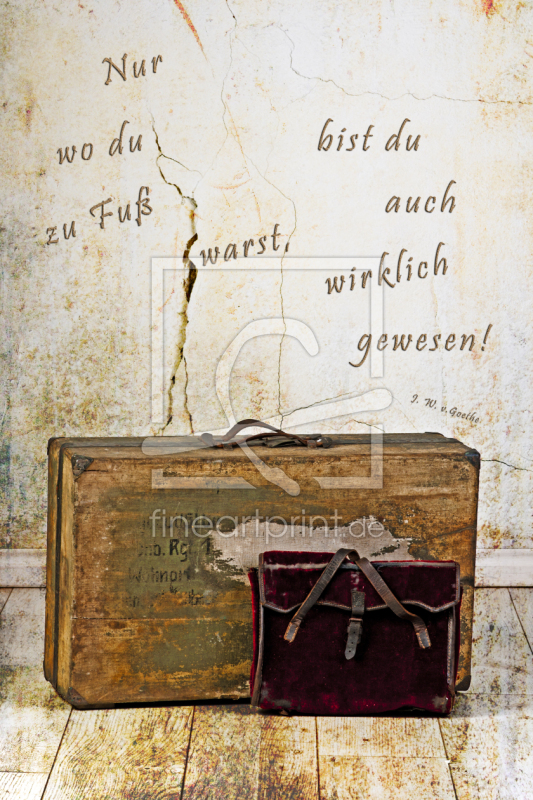 Nur
wo du
zu Fuß
warst,
bist du
auch
wirklich
gewesen!
J. W. v. Goethe
fineartprint.de
Wohnort